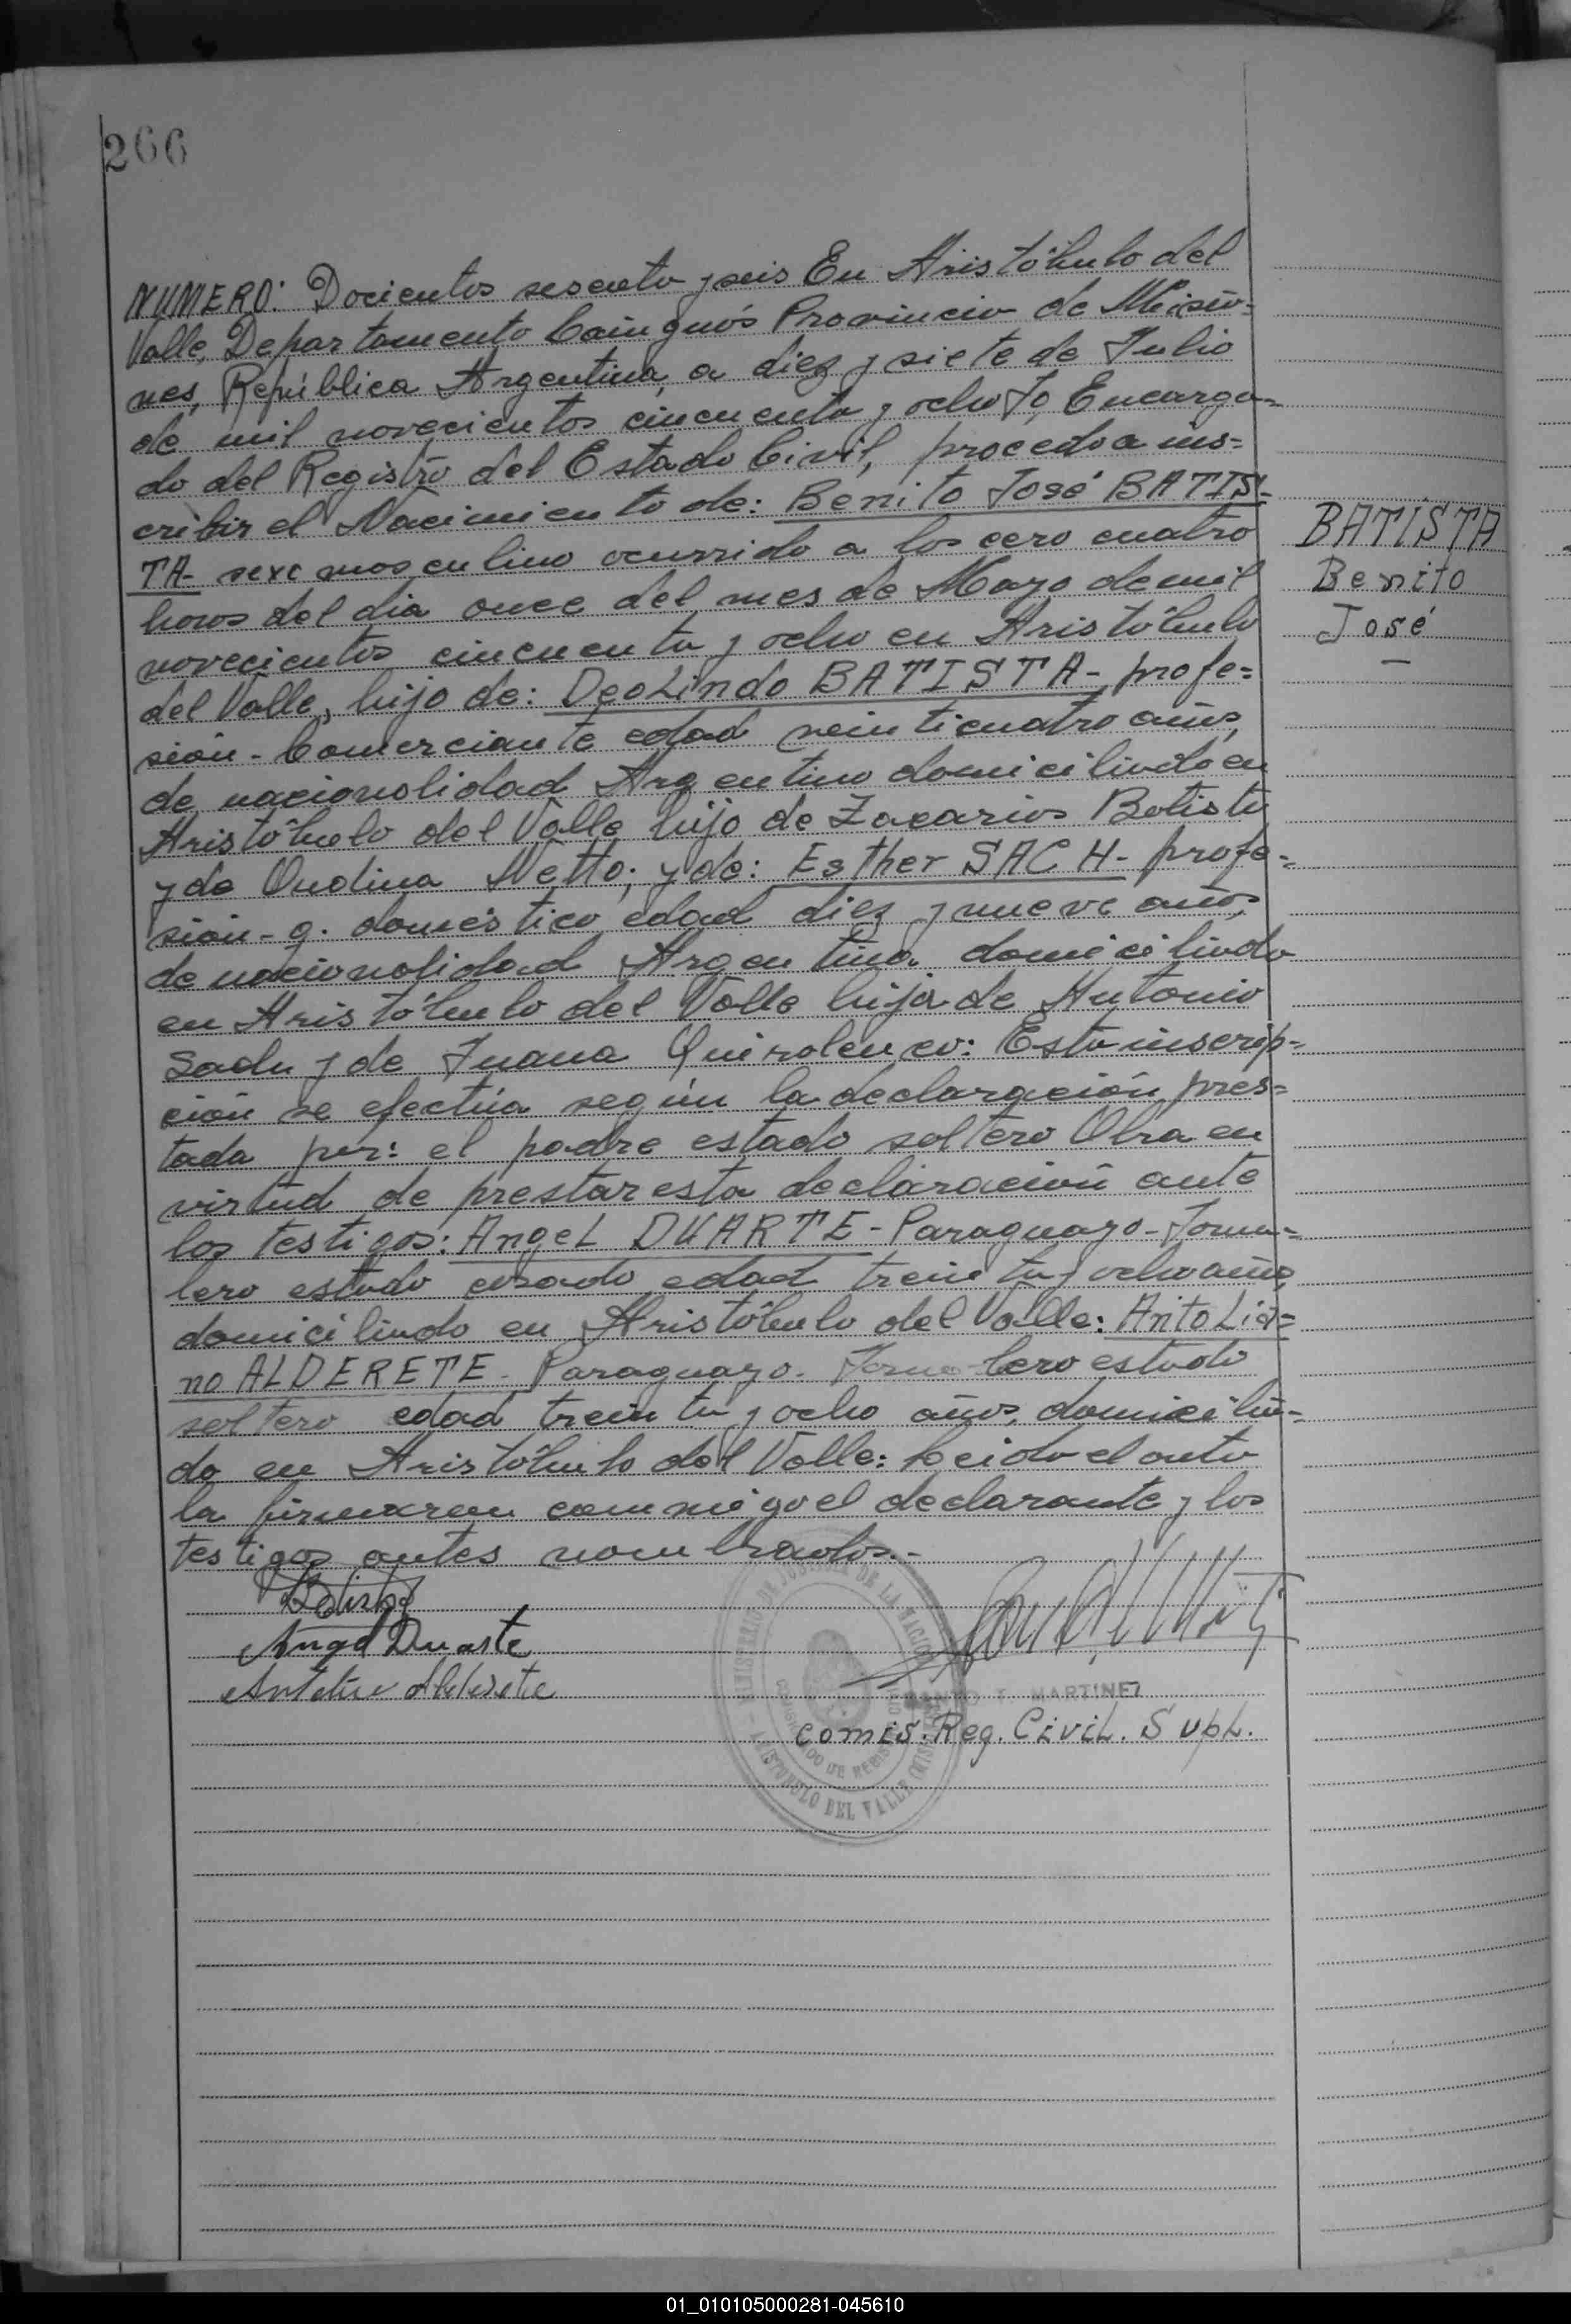 266
NUMERO: Docientos sesenta y seis En Aristóbulo del
Valle, Departamento Cainguás Provincia de Misio=
nes, República Argentina, a diez y siete de Julio
de mil novecientos cincuenta y ocho Yo, Encarga=
do del Registro del Estado Civil, procedo a ins=
cribir el Nacimiento de: Benito José BATIS-
TA- sexo masculino ocurrido a los cero cuatro
horas del dia once del mes de Mayo de mil
novecientos cincuenta y ocho en Aristóbulo
del Valle, hijo de: DeoLindo BATISTA- profe=
sión- Comerciante edad veinticuatro años,
de nacionalidad Argentino domiciliado en
Aristóbulo del Valle hijo de Zacarias Batista
y de Ondina Netto; y de: Esther SACH- profe=
sión- q. doméstico edad diez y nueve años,
de nacionalidad Argentina domiciliada
en Aristóbulo del Valle hija de Antonio
y de Juana Esta inscrip=
ción se efectúa según la declaración pres=
tada por: el padre estado soltero Obra en
virtud de prestar esta declaración ante
los testigos: AngeL DUARTE- Paraguayo- Jorna=
lero estado casado edad treinta y ocho años
domiciliado en Aristóbulo del Valle: AntoLia=
no ALDERETE- Paraguayo- Jornalero estado
soltero edad treinta y ocho años, domicilia=
do en Aristóbulo del Valle: Leido el acta
la firmaron conmigo el declarante y los
testigos antes nombrados.-
BATISTA
Benito
José
Batista
Angel Duarte
Alderete
MINISTERIO DE JUSTICIA DE LA NACION
ARISTOBULO DEL VALLE
T. MARTINEZ
comis. Reg. CiviL. SupL.
01_010105000281-045610